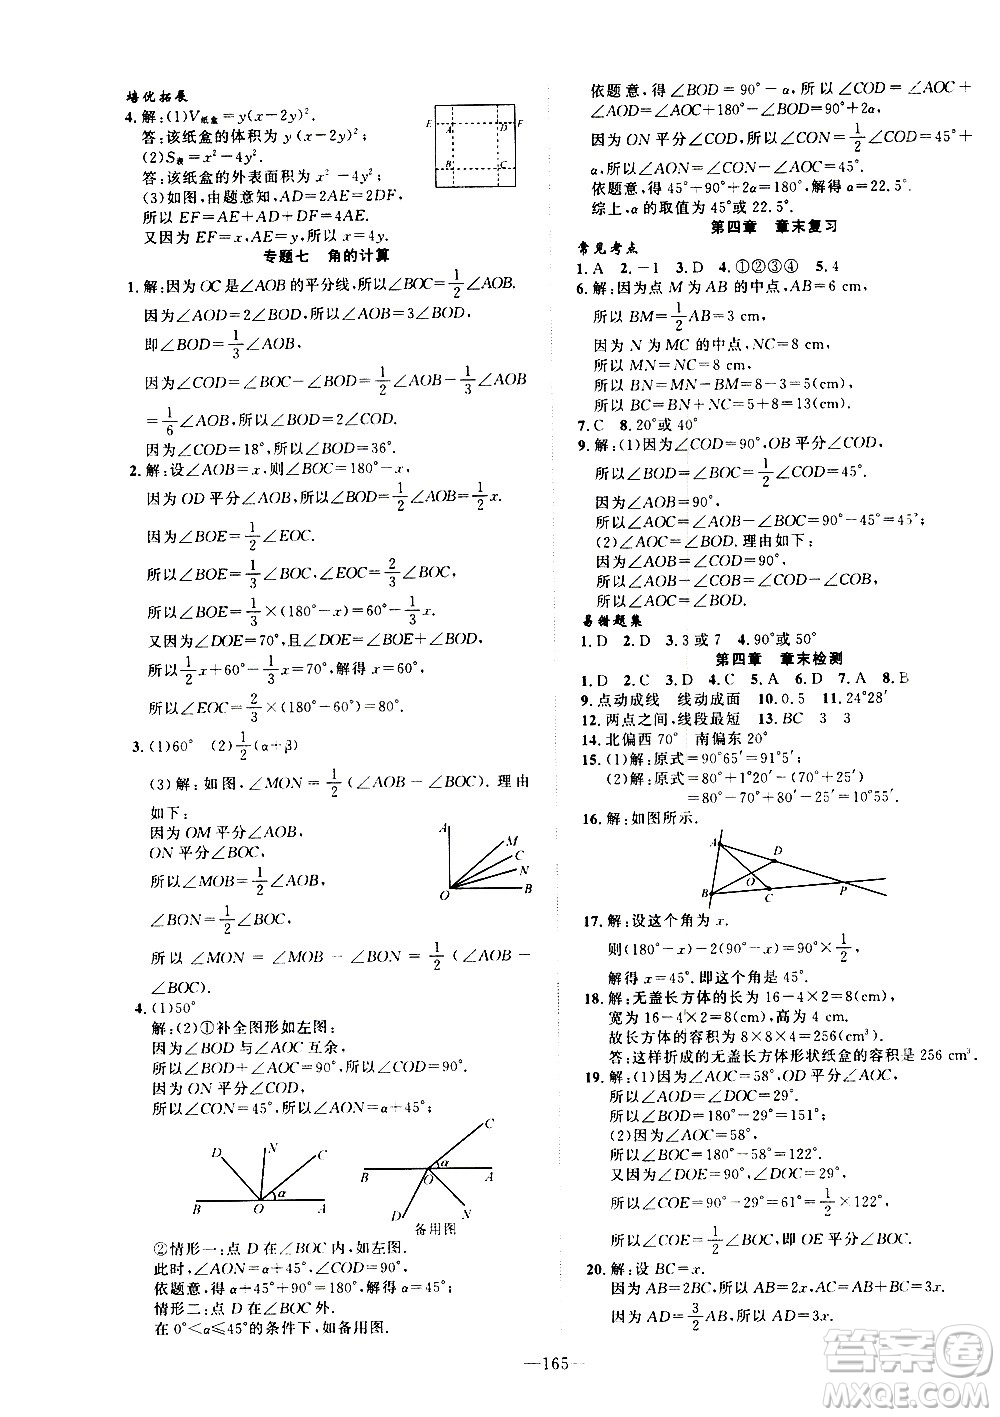 培优拓展
4.解:(1)V纸盒=y(x-2y)².
答:该纸盒的体积为 y(x-2y)²;
(2)S表=x²-4y².
答:该纸盒的外表面积为 x²-4y²;
(3)如图,由题意知,AD=2AE=2DF.
所以 EF=AE+AD+DF=4AE.
又因为 EF=x,AE=y,所以 x=4y.
E A D F
B C
专题七 角的计算
1.解:因为 OC 是∠AOB 的平分线,所以∠BOC=1/2∠AOB.
因为∠AOD=2∠BOD,所以∠AOB=3∠BOD,
即∠BOD=1/3∠AOB.
因为∠COD=∠BOC-∠BOD=1/2∠AOB-1/3∠AOB
=1/6∠AOB,所以∠BOD=2∠COD.
因为∠COD=18°,所以∠BOD=36°.
2.解:设∠AOB=x,则∠BOC=180°-x,
因为 OD 平分∠AOB,所以∠BOD=1/2∠AOB=1/2x.
因为∠BOE=1/2∠EOC.
所以∠BOE=1/3∠BOC,∠EOC=2/3∠BOC,
所以∠BOE=1/3×(180°-x)=60°-1/3x.
又因为∠DOE=70°,且∠DOE=∠BOD+∠BOE,
所以1/2x+60°-1/3x=70°,解得 x=60°.
所以∠EOC=2/3×(180°-60°)=80°.
3.(1)60° (2)1/2(α+β)
(3)解:如图,∠MON=1/2(∠AOB-∠BOC).理由
如下:
因为 OM 平分∠AOB,
ON 平分∠BOC,
所以∠MOB=1/2∠AOB,
∠BON=1/2∠BOC,
所以 ∠MON = ∠MOB - ∠BON = 1/2(∠AOB -
∠BOC).
A M C N O B
4.(1)50°
解:(2)①补全图形如左图:
因为∠BOD 与∠AOC 互余,
所以∠BOD+∠AOC=90°,所以∠COD=90°.
因为 ON 平分∠COD,
所以∠CON=45°,所以∠AON=α+45°;
D N C α B O A
C B O α A D N
备用图
②情形一:点 D 在∠BOC 内,如左图.
此时,∠AON=α+45°,∠COD=90°.
依题意,得α+45°+90°=180°,解得α=45°.
情形二:点 D 在∠BOC 外.
在 0°<α≤45°的条件下,如备用图.
依题意,得∠BOD=90°-α,所以∠COD=∠AOC+
∠AOD=∠AOC+180°-∠BOD=90°+2α,
因为 ON 平分∠COD,所以∠CON=1/2∠COD=45°+
α,所以∠AON=∠CON-∠AOC=45°.
依题意得 45°+90°+2α=180°,解得α=22.5°.
综上,α的取值为 45°或 22.5°.
第四章 章末复习
常见考点
1.A 2.-1 3.D 4.①②③④ 5.4
6.解:因为点 M 为 AB 的中点,AB=6 cm,
所以 BM=1/2AB=3 cm,
因为 N 为 MC 的中点,NC=8 cm,
所以 MN=NC=8 cm,
所以 BN=MN-BM=8-3=5(cm),
所以 BC=BN+NC=5+8=13(cm).
7.C 8.20°或 40°
9.解:(1)因为∠COD=90°,OB 平分∠COD,
所以∠BOC=∠BOD=1/2∠COD=45°.
因为∠AOB=90°,
所以∠AOC=∠AOB-∠BOC=90°-45°=45°;
(2)∠AOC=∠BOD.理由如下:
因为∠AOB=∠COD=90°,
所以∠AOB-∠COB=∠COD-∠COB,
所以∠AOC=∠BOD.
易错题集
1.D 2.D 3.3 或 7 4.90°或 50°
第四章 章末检测
1.D 2.C 3.D 4.C 5.A 6.D 7.A 8.B
9.点动成线 线动成面 10.0.5 11.24°28′
12.两点之间,线段最短 13.BC 3 3
14.北偏西 70° 南偏东 20°
15.(1)解:原式=90°65′=91°5′;
(2)解:原式=80°+1°20′-(70°+25′)
=80°-70°+80′-25′=10°55′.
16.解:如图所示.
A D O B C P
17.解:设这个角为 x.
则(180°-x)-2(90°-x)=90°×1/2.
解得 x=45°.即这个角是 45°.
18.解:无盖长方体的长为 16-4×2=8(cm)
宽为 16-4×2=8(cm)
故长方体的容积为 8×8×4=256(cm³)
答:这样折成的无盖长方体形状纸盒的容积是 256 cm³.
19.解:(1)因为∠AOC=58°,OD 平分∠AOC,
所以∠AOD=∠DOC=29°.
所以∠BOD=180°-29°=151°;
(2)因为∠AOC=58°,
所以∠BOC=180°-58°=122°.
又因为∠DOE=90°,∠DOC=29°,
所以∠COE=90°-29°=61°=1/2×122°.
所以∠COE=1/2∠BOC,即 OE 平分∠BOC.
20.解:设 BC=x.
因为 AB=2BC,所以 AB=2x,AC=3x.
因为 AD=3/2AB,所以 AD=3x.
—165—
答案圈
MXQE.COM